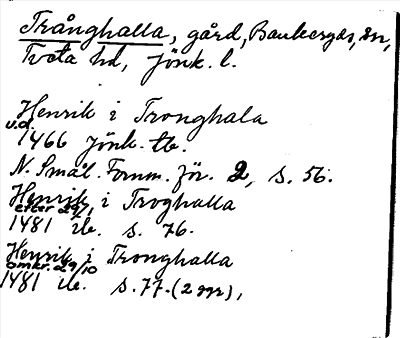 Trånghalla, gård, Bankeryds, sn,
Tveta hd, Jönk. l.
Henrik i Tronghala
u.d.
1466 Jönk. tb.
N. Smål. Fornm. för. 2, s. 56.
Henrik i Troghalla
efter 29/1
1481 ib. s. 76.
Henrik i Tronghalla
omkr. 29/10
1481 ib. s. 77. (2 ggr),